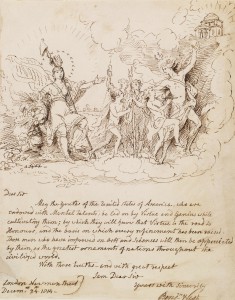 Dear Sir
May the Youths of the United States of America, who are
endowed with Mental talents, be led on by Virtue and Genius while
cultivating them; by which they will prove that Virtue is the road to
Honours, and the basis on which every refinement has been raised.
Then men who have improved in arts and sciences will then be appreciated
by them, as the greatest ornaments of nations throughout the
civilized world.
With these wishes and with great respect
I am Dear Sir
Yours with Sincerity
London Newman Street
Benj. West